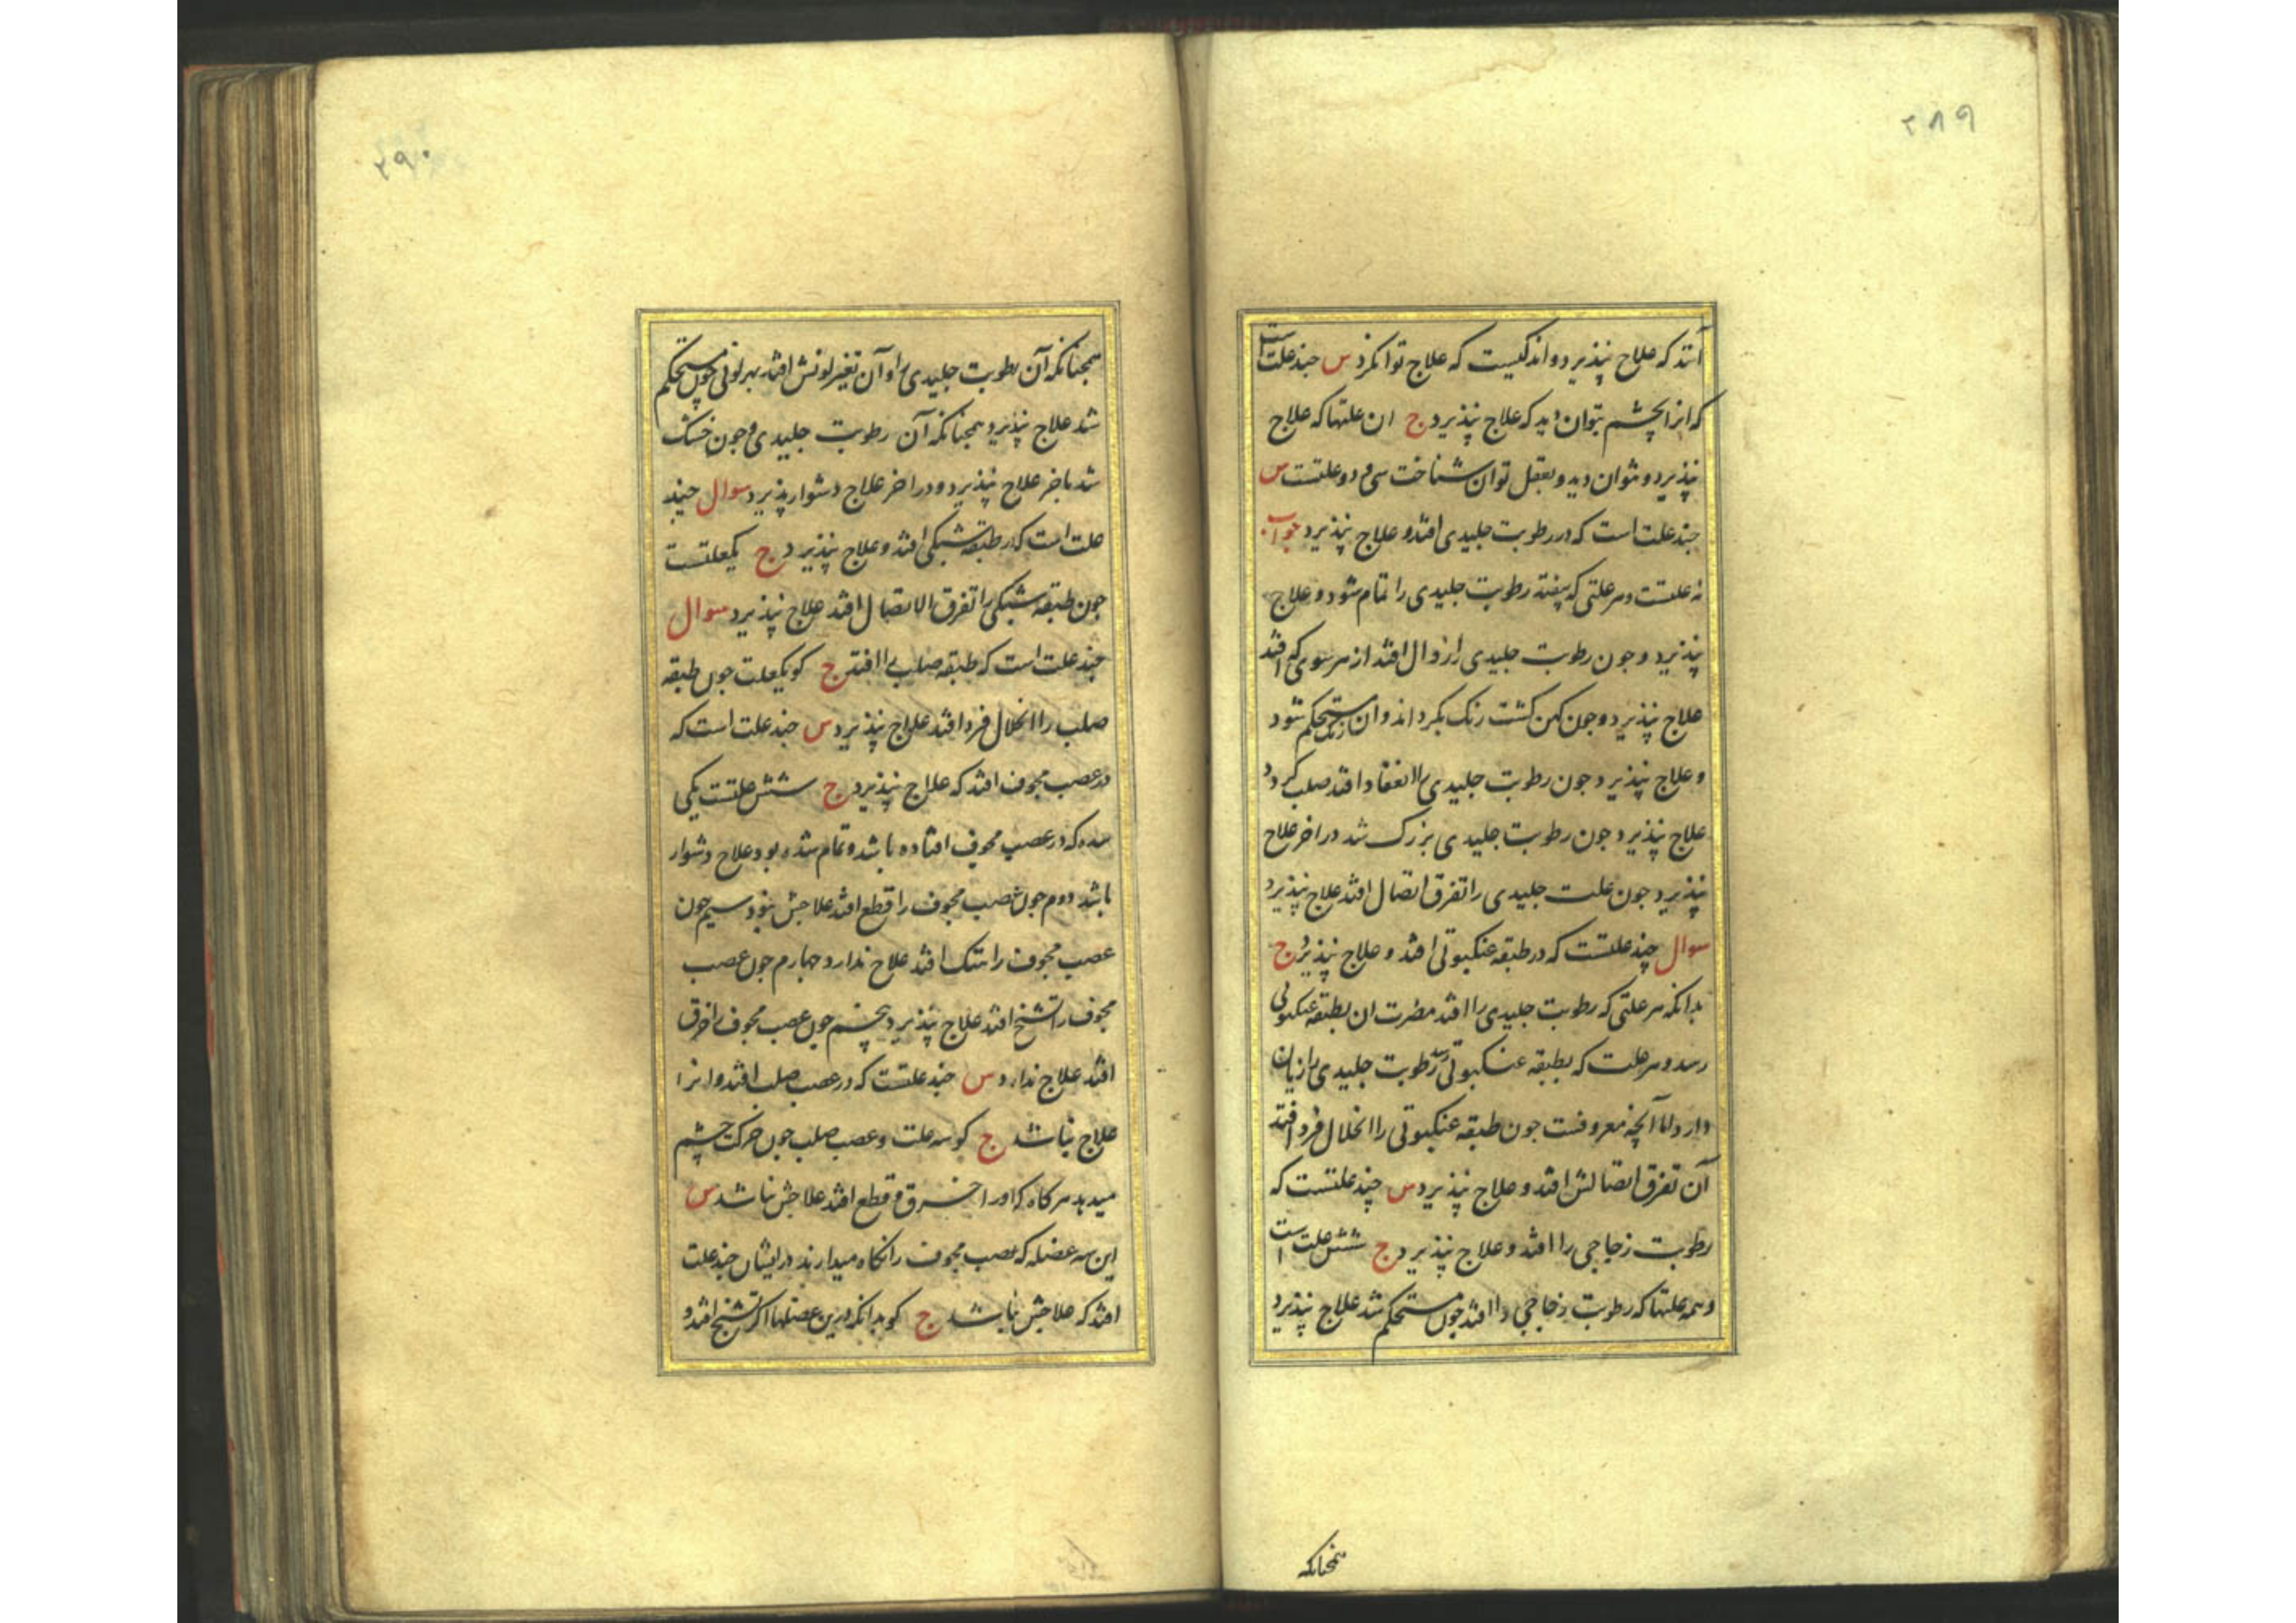 ۲۸۹
آنند که علاج نپذیرد و اندکیست که علاج توان کرد س چند علت است
که از انچشم بتوان دید که علاج نپذیرد ج ان علتها که علاج
نپذیرد و نتوان دید و بعقل توان شناخت سی و دو علتست س
چند علت است که در رطوبت جلیدی افتد و علاج نپذیرد جواب
نه علتست و هر علتی که بیفتد رطوبت جلیدی را تمام شود و علاج
نپذیرد و جون رطوبت جلیدی را زوال افتد از هر سوی که افتد
علاج نپذیرد و جون کهن کشت رنک بکرداند و ان رنک مستحکم شود
و علاج نپذیرد جون رطوبت جلیدی را انعقاد افتد صلب کردد
علاج نپذیرد جون رطوبت جلیدی بزرک شد در اخر علاج
نپذیرد جون علت جلیدی را تفرق اتصال افتد علاج نپذیرد
سوال چند علتست که در طبقه عنکبوتی افتد و علاج نپذیرد ج
بدانکه هر علتی که رطوبت جلیدی را افتد مضرت ان بطبقه عنکبوتی
رسد و هر علت که بطبقه عنکبوتی رسد رطوبت جلیدی را زیان
دارد اما آنچه معروفست جون طبقه عنکبوتی را انحلال فرد افتد
آن تفرق اتصالش افتد و علاج نپذیرد س چند علتست که
رطوبت زجاجی را افتد و علاج نپذیرد ج شش علت است
و همه علتها که رطوبت زجاجی را افتد جون مستحکم شد علاج نپذیرد
همچنانکه
۲۹۰
همچنانکه آن رطوبت جلیدی را و آن تغیر لونش افتد بهر لونی چون مستحکم
شد علاج نپذیرد همچنانکه آن رطوبت جلیدی و جون خشک
شد باخر علاج نپذیرد و در اخر علاج دشوار پذیرد سوال چند
علت است که در طبقه شبکی افتد و علاج نپذیرد ج یکعلتست
جون طبقه شبکی را تفرق الاتصال افتد علاج نپذیرد سوال
چند علت است که طبقه صلب را افتد ج کو یکعلت جون طبقه
صلب را انحلال فرد افتد علاج نپذیرد س چند علت است که
در عصب مجوف افتد که علاج نپذیرد ج شش علتست یکی
سده که در عصب مجوف افتاده باشد و تمام شده بود علاج دشوار
باشد دوم جون عصب مجوف را قطع افتد علاجش نبود سیم جون
عصب مجوف را هتک افتد علاج ندارد چهارم جون عصب
مجوف را تشنج افتد علاج نپذیرد پنجم جون عصب مجوف را خرق
افتد علاج ندارد س چند علتست که در عصب صلب افتد و انرا
علاج نباشد ج کو سه علت و عصب صلب جون حرکت چشم
میدهد هر کاه که او را خرق و قطع افتد علاجش نباشد س
این سه عضله که عصب مجوف را نکاه میدارند در ایشان چند علت
افتد که علاجش نباشد ج کو بدانکه درین عضلها اکر تشنج افتد و